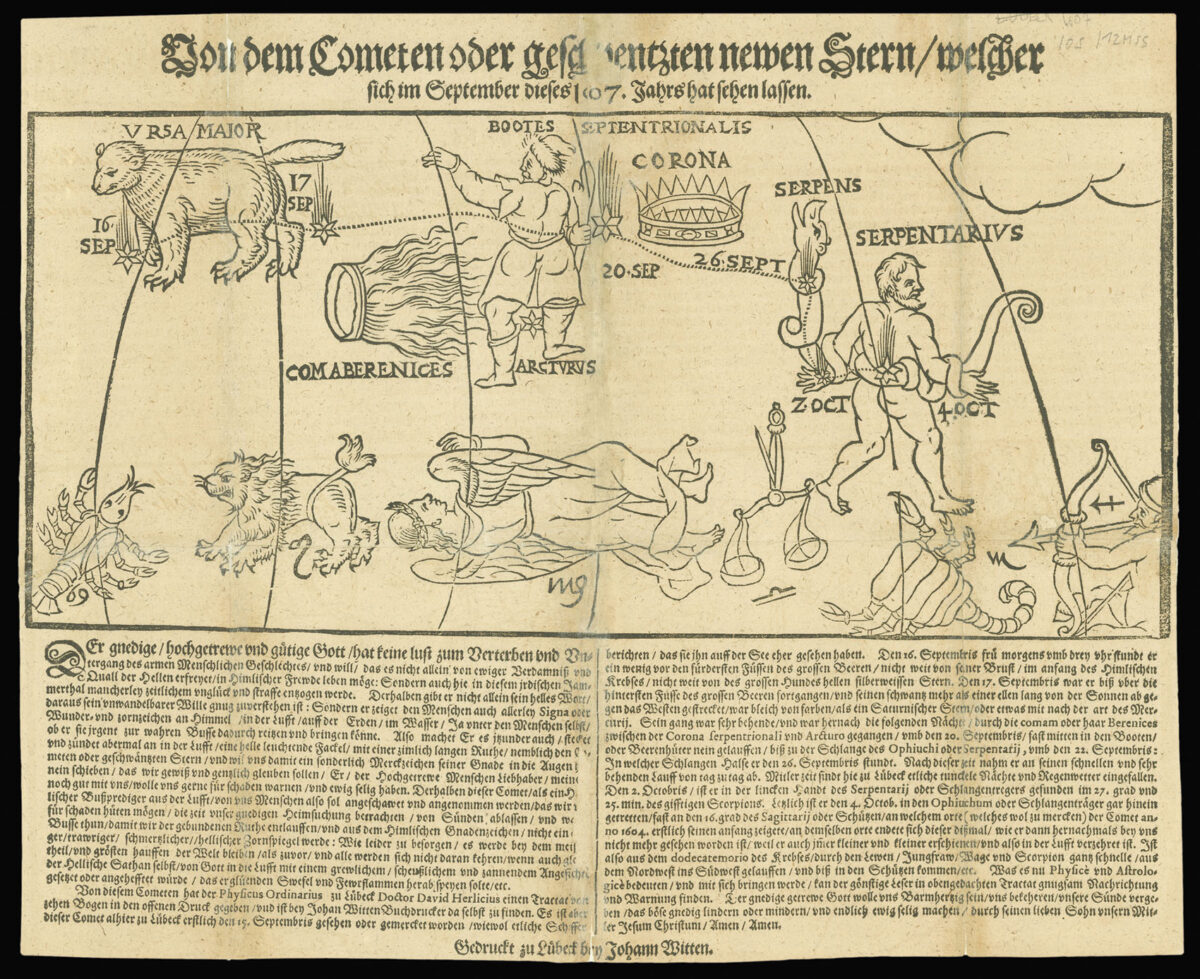 Von dem Cometen oder geschwentzten newen Stern/ welcher
sich im September dieses 1607. Jahrs hat sehen lassen.
VRSA MAIOR
BOOTES SEPTENTRIONALIS
CORONA
SERPENS
SERPENTARIVS
16 SEP
17 SEP
20·SEP
26·SEPT
COMABERENICES
ARCTVRVS
2·OCT
4·OCT
DEr gnedige/ hochgetrewe vnd gůtige Gott/ hat keine lust zum Verterben vnd Vn-
tergang des armen Menschlichen Geschlechtes/ vnd will/ das es nicht allein von ewiger Verdamniß vnd
Quall der Hellen erfreyet/ in Himlischer Frewde leben möge: Sondern auch hie in diesem jrdischen Jam-
merthal mancherley zeitlichem vnglück vnd straffe entzogen werde. Derhalben gibt er nicht allein sein helles Wort/
daraus sein vnwandelbarer Wille gnug zuverstehen ist: Sondern er zeiget den Menschen auch allerley Signa oder
Wunder- vnd zornzeichen an Himmel/ in der Lufft/ auff der Erden/ im Wasser/ Ja vnter den Menschen selbst/
ob er sie jrgent zur wahren Busse dadurch reitzen vnd bringen könne. Also machet Er es jtzunder auch/ stecket
vnd zündet abermal an in der Lufft/ eine helle leuchtende Fackel/ mit einer zimlich langen Ruthe/ nemblich den Co-
meten oder geschwäntzten Stern/ vnd wil vns damit ein sonderlich Merckzeichen seiner Gnade in die Augen
nein schieben/ das wir gewiß vnd gentzlich gleuben sollen/ Er/ der Hochgetrewe Menschen Liebhaber/ meine
noch gut mit vns/ wolle vns gerne für schaden warnen/ vnd ewig selig haben. Derhalben dieser Comet/ als ein Him-
lischer Bußprediger aus der Lufft/ von vns Menschen also sol angeschawet vnd angenommen werden/ das wir
für schaden hüten mögen/ die zeit vnser gnedigen Heimsuchung betrachten/ von Sünden ablassen/ vnd
Busse thun/ damit wir der gebundenen Ruthe entlauffen/ vnd aus dem Himlischen Gnadenzeichen/ nicht ein
ger/ trawriger/ schmerzlicher/ hellischer Zornspiegel werde: Wie leider zu besorgen/ es werde bey dem
theil/ vnd grösten hauffen der Welt bleiben/ als zuvor/ vnd alle werden sich nicht daran kehren/ wenn auch gleich
der Hellische Sathan selbst/ von Gott in die Lufft mit einem grewlichem/ scheußlichem vnd zannendem Angesichte
gesetzt oder angehefftet würde/ das er glüenden Swefel vnd Fewrflammen herab speyen solte/ etc.
Von diesem Cometen hat der Physicus Ordinarius zu Lübeck Doctor David Herlicius einen Tractat von
zehen Bogen in den offenen Druck gegeben/ vnd ist bey Johan Witten Buchdrucker da selbst zu finden. Es ist aber
dieser Comet alhier zu Lübeck erstlich den 15. Septembris gesehen oder gemercket worden/ wiewol etliche Schiffer
berichten/ das sie ihn auff der See eher gesehen haben. Den 16. Septembris frü morgens vmb drey vhr stundt er
ein wenig vor den fürdersten Füssen des grossen Beeren/ nicht weit von seiner Brust/ im anfang des Himlischen
Krebses/ nicht weit von des grossen Hundes hellen silberweissen Stern. Den 17. Septembris war er biß vber die
hintersten Füsse des grossen Beeren fortgangen/ vnd seinen schwantz mehr als einer ellen lang von der Sonnen ab ge-
gen das Westen gestrecket/ war bleich von farben/ als ein Saturnischer Stern/ oder etwas mit nach der art des Mer-
curij. Sein gang war sehr behende/ vnd war hernach die folgenden Nächte/ durch die comam oder haar Berenices
zwischen der Corona septentrionali vnd Arcturo gegangen/ vmb den 20. Septembris/ fast mitten in den Booten/
oder Beerenhüter nein gelauffen/ biß zu der Schlange des Ophiuchi oder Serpentarij, vmb den 22. Septembris:
In welcher Schlangen Halse er den 26. Septembris stundt. Nach dieser zeit nahm er an seinen schnellen vnd sehr
behenden Lauff von tag zu tag ab. Mitler zeit findt hie zu Lübeck etliche tunckele Nächte vnd Regenwetter eingefallen.
Den 2. Octobris/ ist er in der lincken Handt des Serpentarij oder Schlangentregers gefunden im 27. grad vnd
25. min. des gifftigen Scorpions. Letzlich ist er den 4. Octob. in den Ophiuchum oder Schlangenträger gar hinein
getretten/ fast an den 16. grad des Sagittarij oder Schützen/ an welchem orte (welches wol zu mercken) der Comet an-
no 1604. erstlich seinen anfang zeigete/ an demselben orte endet sich dieser dißmal/ wie er dann hernachmals bey vns
nicht mehr gesehen worden ist/ weil er auch jmer kleiner vnd kleiner erschienen/ vnd also in der Lufft verzehret ist. Ist
also aus dem dodecatemorio des Krebses/ durch den Lewen/ Jungfraw/ Wage vnd Scorpion gantz schnelle/ aus
dem Nordwest ins Südwest gelauffen/ vnd biß in den Schützen kommen/ etc. Was es nu Physicè vnd Astrolo-
gicè bedeuten/ vnd mit sich bringen werde/ kan der günstige Leser in obengedachten Tractat gnugsam Nachrichtung
vnd Warnung finden. Der gnedige getrewe Gott wolle vns Barmhertzig sein/ vns bekehren/ vnsere Sünde verge-
ben/ das böse gnedig lindern oder mindern/ vnd endlich ewig selig machen/ durch seinen lieben Sohn vnsern Mit-
ler Jesum Christum/ Amen/ Amen.
Gedruckt zu Lübeck bey Johann Witten.